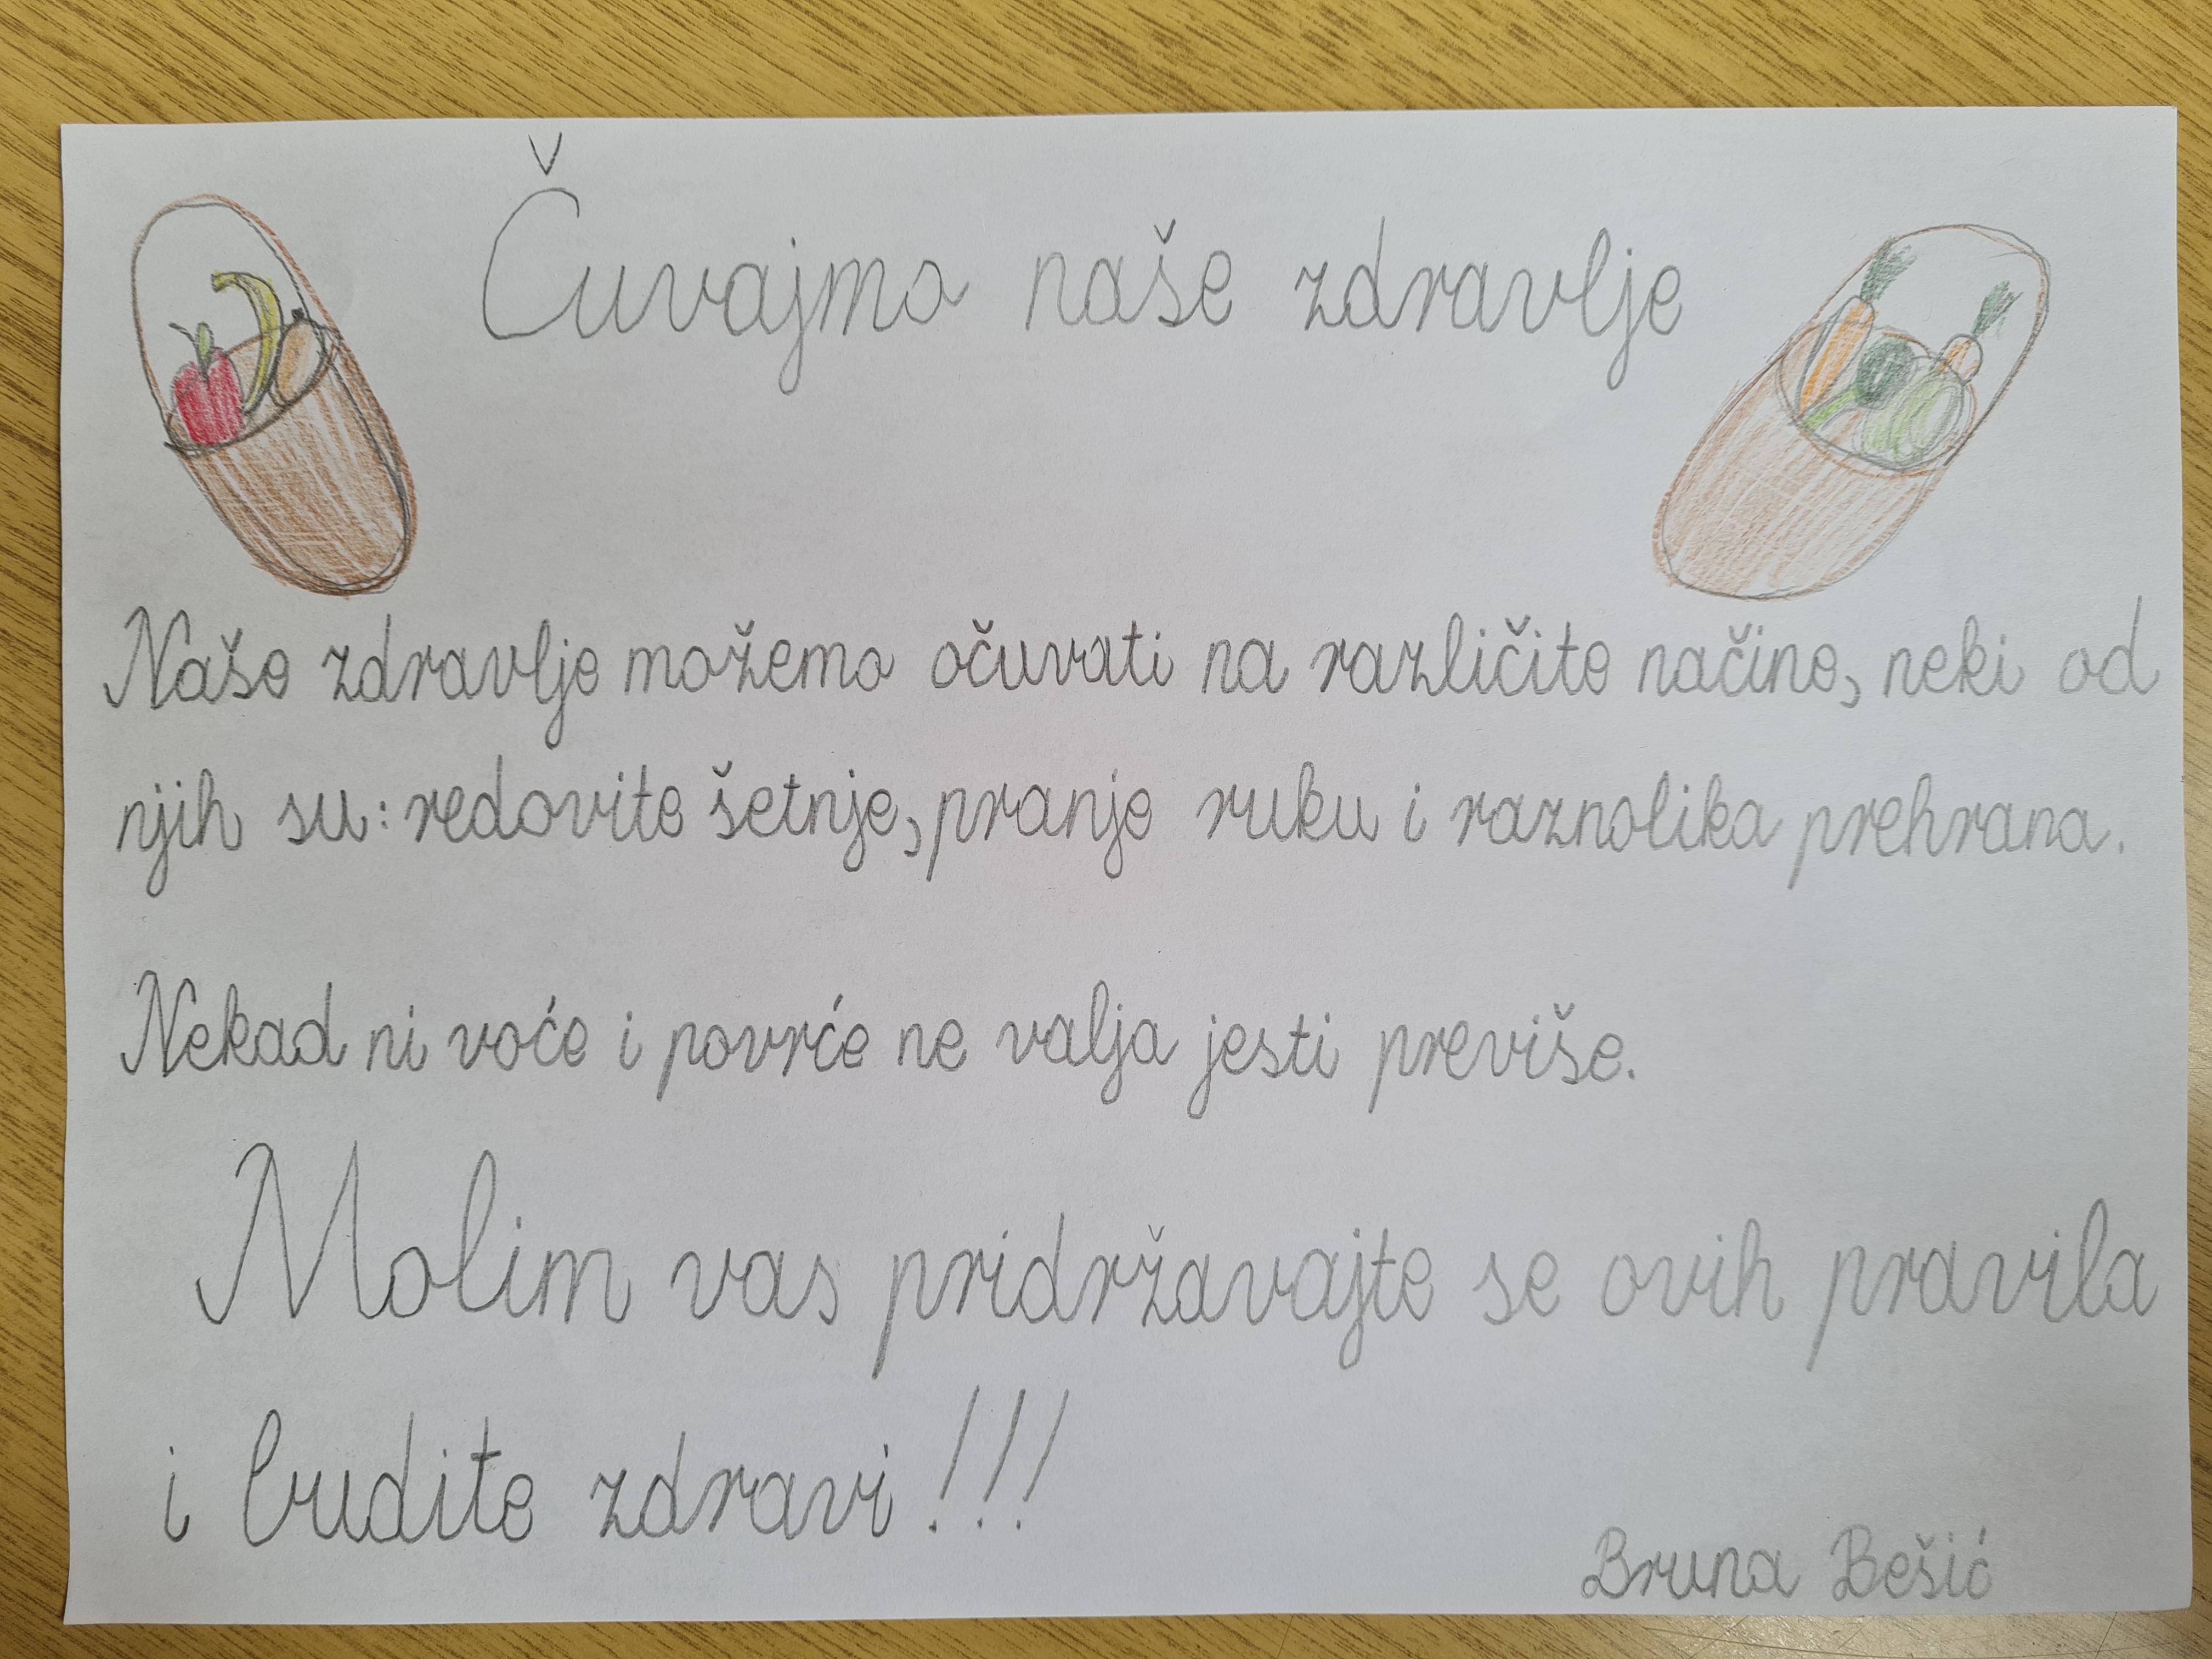 Čuvajmo naše zdravlje
Naše zdravlje možemo očuvati na različite načine, neki od
njih su: redovite šetnje, pranje ruku i raznolika prehrana.
Nekad ni voće i povrće ne valja jesti previše.
Molim vas pridržavajte se ovih pravila
i budite zdravi!!!
Bruna Bešić